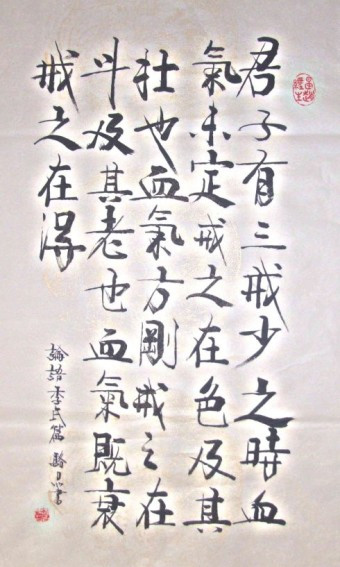 君子有三戒少之時血
氣未定戒之在色及其
壮也血氣方剛戒之在
斗及其老也血氣既衰
戒之在得
論語季氏篇